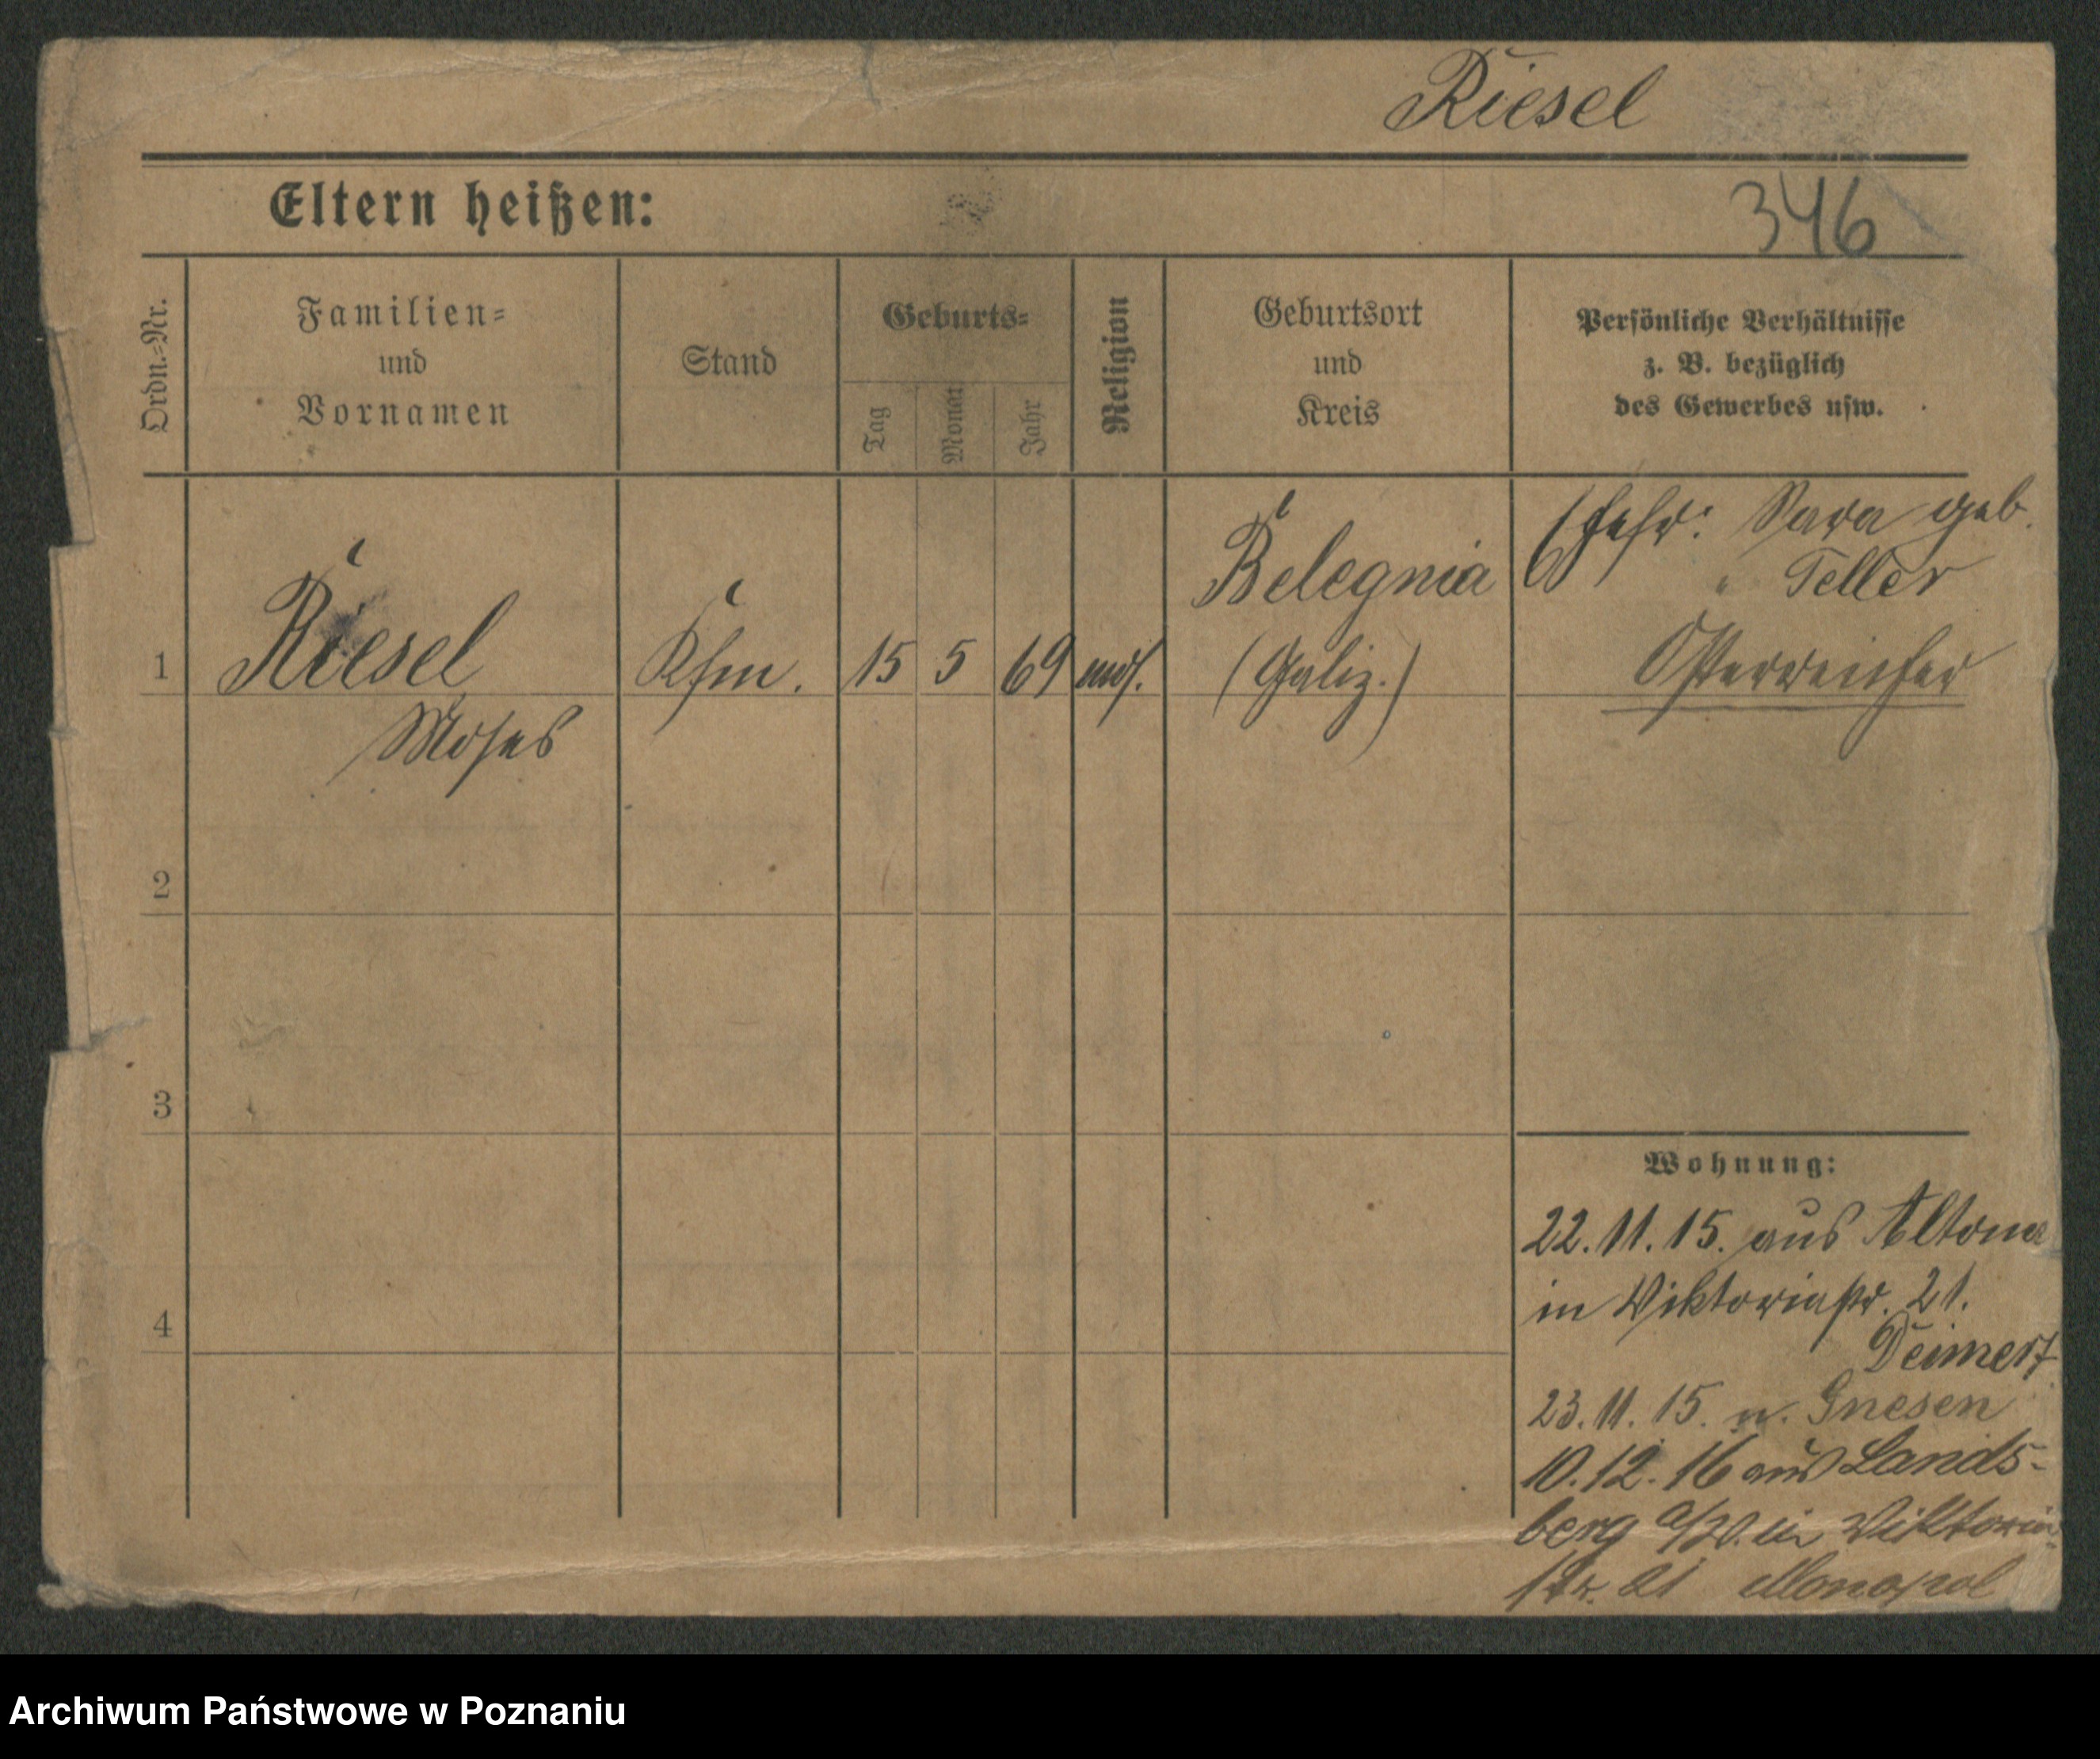 Riesel
Eltern heißen:
346
Ordn.-Nr.
Familien-
und
Vornamen
Stand
Geburts-
Tag
Monat
Jahr
Religion
Geburtsort
und
Kreis
Persönliche Verhältnisse
z. B. bezüglich
des Gewerbes usw.
1
Riesel
Moses
Kfm.
15
5
69
mos.
Belegnia
(Galiz.)
Ehefr: Sara geb.
" Teller
Österreicher
2
3
4
Wohnung:
22.11.15. aus Altona
in Viktoriastr. 21.
23.11.15. n. Gnesen
10.12.16 aus Lands-
berg a/W. in Viktoria-
str. 21 Monopol
Archiwum Państwowe w Poznaniu